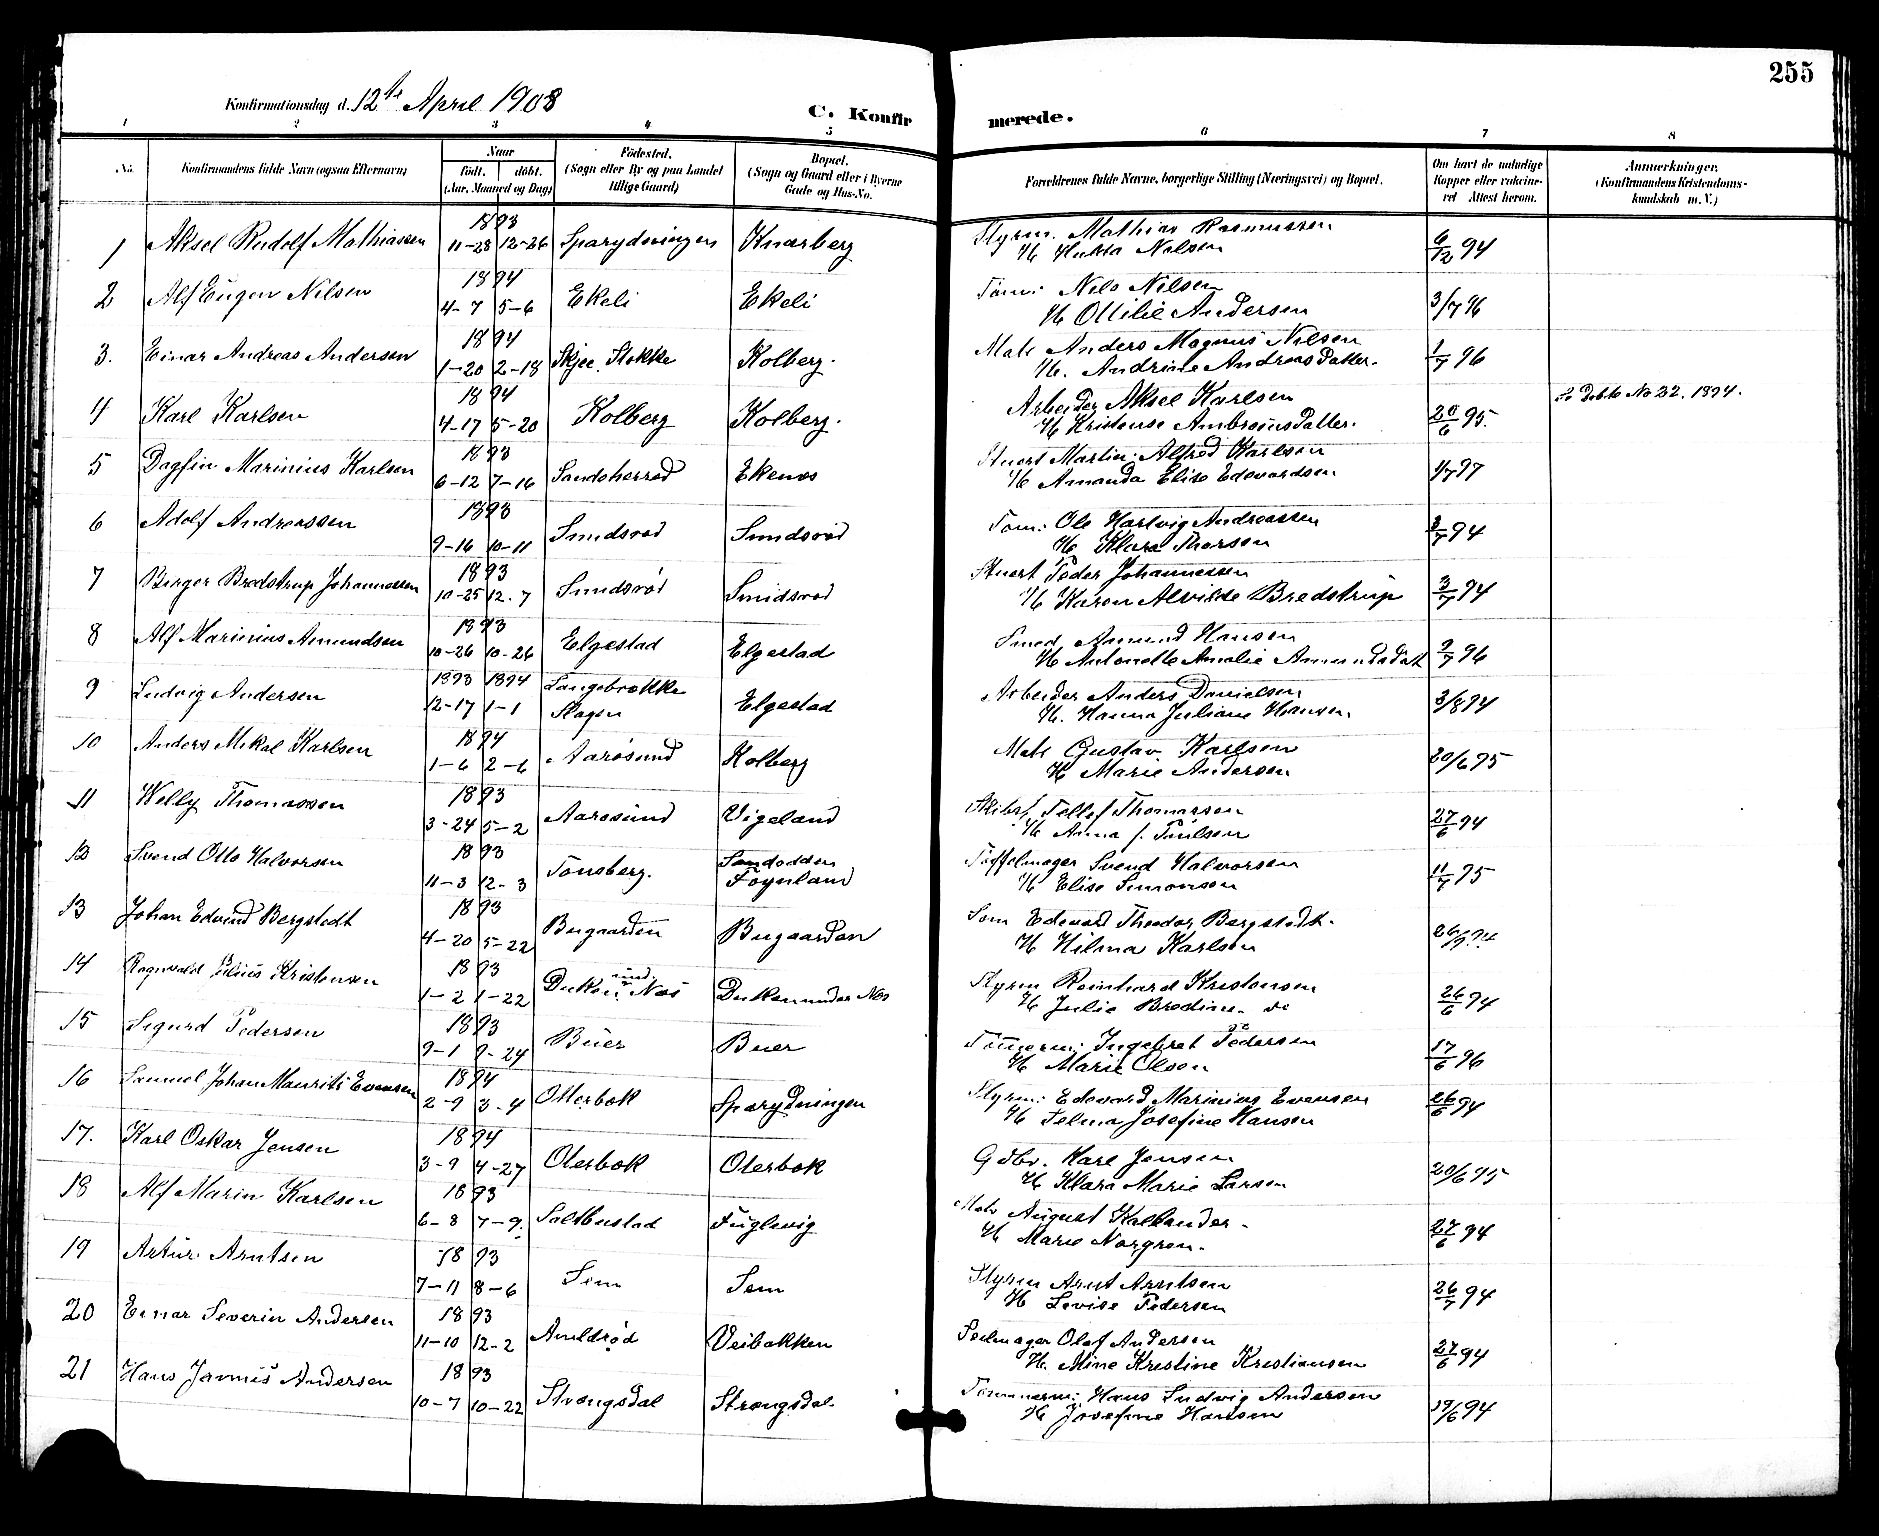 255
Konfirmationsdag d. 12te April 1908
C. Konfirmerede.
1 2 3 4 5 6 7 8
No. Konfirmandens fulde Navn (ogsaa Efternavn) Naar født. døbt. (Aar, Maaned og Dag) Fødested. (Sogn eller By og paa Landet tillige Gaard) Bopæl. (Sogn og Gaard eller i Byerne Gade og Hus-No. Forældrenes fulde Navne, borgerlige Stilling (Næringsvei) og Bopæl. Om havt de naturlige Kopper eller vakcineret Attest herom. Anmerkninger. (Konfirmandens Kristendomskundskab m. V.)
1 Aksel Rudolf Mathiassen 1893 11-28 12-26 Knarberg Styrm. Mathias Rasmussen
H. Nilsen 6/2 94
2 Alf Eugen Nilsen 1894 4-7 5-6 Ekeli Ekeli Tøm: Nils Nilsen
H Ottilie Andersen 3/7 96
3. Einar Andreas Andersen 1894 1-20 2-18 Skjee. Stokke Kolberg. Matr Anders Magnus Nilsen
H. Andrine Andreasdatter. 1/7 96
4 Karl Karlsen 1894 4-17 5-20 Kolberg Kolberg. Arbeider Aksel Karlsen
H Kristense Ambrosiusdatter. 20/6 95. Se Døbte No 22. 1894.
5 Dagfin Marinius Karlsen 1893 6-12 7-16 Sandeherred Ekenes Stuert Martin Alfred Karlsen
H Amanda Elise Edevardsen 1/7 97
6 Adolf Andreassen 1893 9-16 10-11 Smidsrød Smidsrød Tøm: Ole Hartvig Andreassen
H Klara Thorsen 3/7 94
7 Birger Bredstrup Johannessen 1893 10-25 12-7 Smidsrød Smidsrød Stuert Peder Johannessen
H Karen Alvilde Bredstrup 3/7 94
8 Alf Marinius Amundsen 1893 10-26 10-26 Elgestad Elgestad Smed Amund Hansen
H Antonette Amalie Amundsdatt 9/7 96
9 Ludvig Andersen 1893 12-17 1894 1-1 Langebrække
Skagen Elgestad Arbeider Anders Danielsen
H. Hanna Juliane Hansen. 3/8 94
10 Anders Mikal Karlsen 1894 1-6 2-6 Aarøsund Kolberg Matr Gustav Karlsen
H Marie Andersen 20/6 95
11 Willy Thomassen 1893 3-24 5-2 Aarøsund Vigeland Skibsf. Tellef Thomassen
H Anna f. Paulsen 27/6 94
12 Svend Otto Halvorsen 1893 11-3 12-3 Tønsberg. Sandodden
Føynland Tøffelmager Svend Halvorsen
H Elise Simonsen 11/7 95
13 Johan Edvind Bergstedt 1893 4-20 5-22 Bugaarden Bugaarden Søm Edevard Theodor Bergstedt.
H Hilma Karlsen
14 Ragnvald Julius Kristensen 1893 1-2 1-22 Duken und. Næs Duken under Næs Styrm Reinhard Kristensen
H Julie Bredine 26/6 94
15 Sigurd Pedersen 1893 9-1 9-24 Buer Buer Tømmerm: Ingebret Pedersen
H Marie Olsen 17/6 96
16 Samuel Johan Maurits Evensen 1894 2-9 3-4 Oterbæk Sparydningen Styrm: Edevard Marinius Evensen
H Selma Josefine Hansen 26/6 94
17. Karl Oskar Jensen 1894 3-9 4-27 Oterbæk Oterbæk Gdbr. Karl Jensen
H Klara Marie Larsen 20/6 95
18 Alf Marin Karlsen 1893 6-8 7-9. Saltbustad Fuglevig Matr August Kallander.
H Marie Norgren. 27/6 94
19 Artur Arntsen 1893 7-11 8-6 Sem Sem Styrm Arnt Arntsen
H Lovise Pedersen 26/7 94
20 Einar Severin Andersen 1893 11-10 12-2 Amldrød Veibakken Seilmager Olaf Andersen
H. Mine Kristine Kristiansen 27/6 94
21 Hans Jarmis Andersen 1893 10-7 10-22 Strængsdal Strængsdal Tømmerm: Hans Ludvig Andersen
H Josefine Hansen 19/6 94